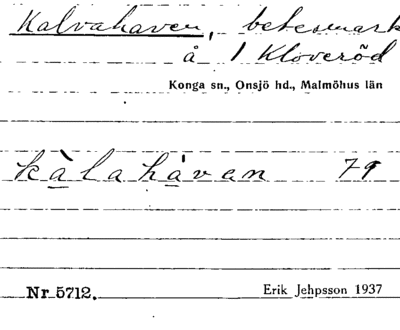 Kalvahaven, betesmark
å 1 Kloveröd
Konga sn., Onsjö hd., Malmöhus län
kàlahávan 79
Nr 5712.
Erik Jehpsson 1937